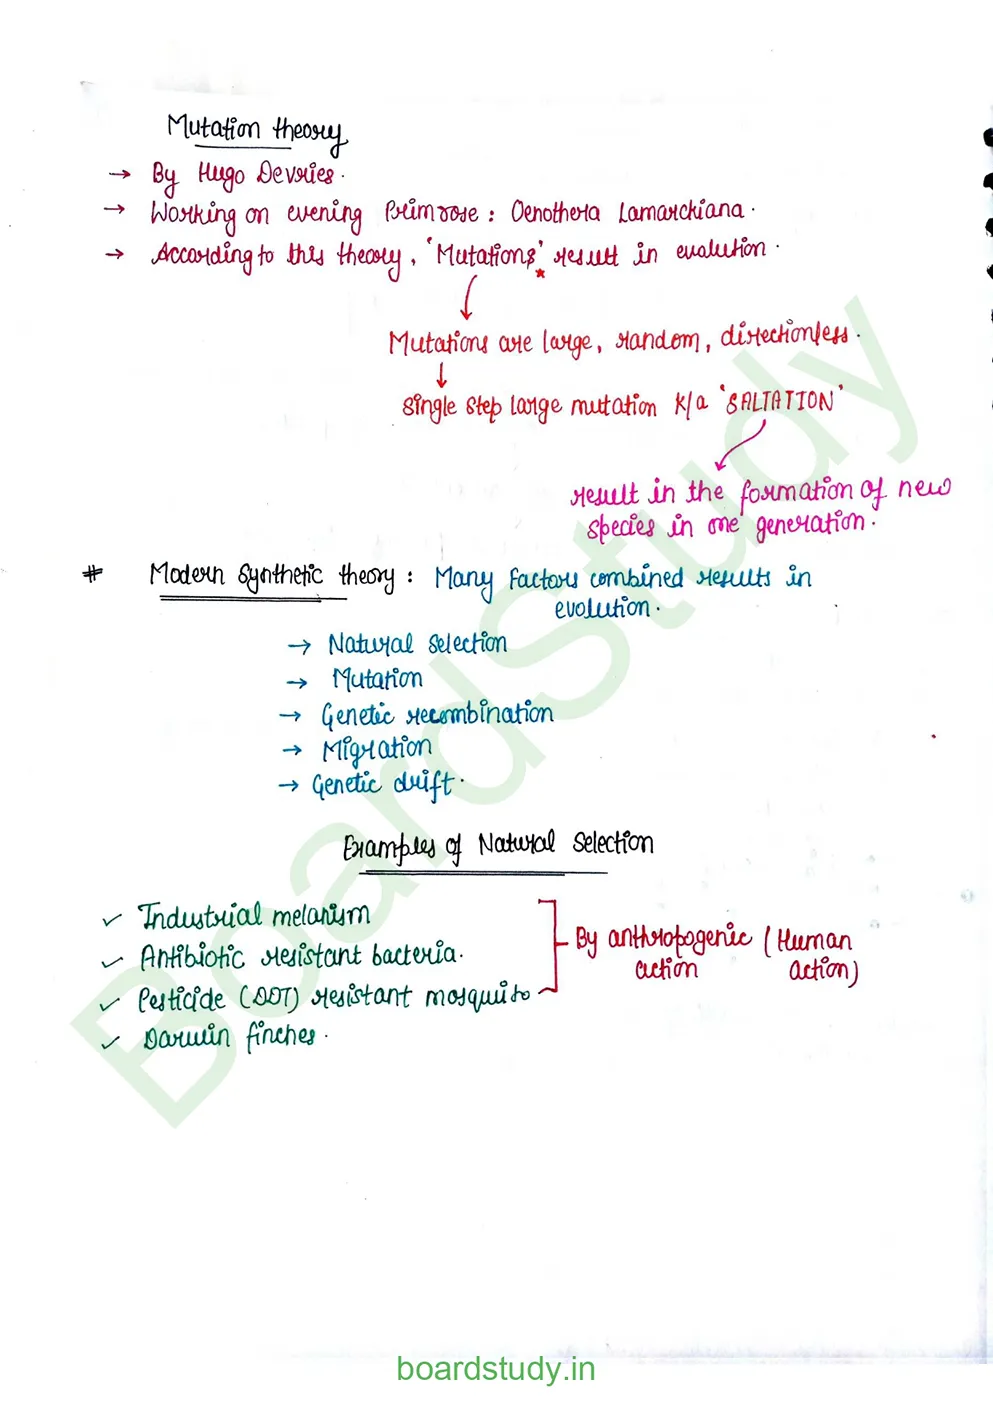 Mutation theory
→ By Hugo Devries.
→ Working on evening Primrose: Oenothera Lamarckiana.
→ According to this theory, 'Mutations' result in evolution.
*
Mutations are large, random, directionless.
↓
Single step large mutation k/a 'SALTATION'
result in the formation of new
species in one generation.
# Modern Synthetic theory: Many factors combined results in
evolution.
→ Natural selection
→ Mutation
→ Genetic recombination
→ Migration
→ Genetic drift.
Examples of Natural Selection
✓ Industrial melanism
✓ Antibiotic resistant bacteria.
✓ Pesticide (DDT) resistant mosquito
✓ Darwin finches.
By anthropogenic (Human
action action)
BoardStudy
boardstudy.in